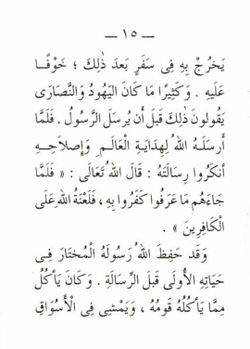 — ١٥ —
يَخرُجْ بِهِ فِى سَفَرٍ بَعدَ ذٰلِكَ ؛ خَوْفًا
عَلَيهِ . وَكَثِيرًا مَا كَانَ اليَهُودُ وَالنَّصَارَى
يَقولونَ ذٰلِكَ قَبلَ أَن يُرسَلَ الرَّسُولُ . فَلَمَّا
أَرسَلَهُ اللهُ لِهِدَايَةِ العَالَمِ وَإِصلاَحِهِ
أنكَرُوا رِسَالَتَهُ : قَالَ اللهُ تَعَالَى : « فَلَمَّا
جَاءَهُم مَا عَرَفُوا كَفَرُوا بِهِ ، فَلَعْنَةُ اللهِ عَلَى
الْكَافِرِينَ » .
وَقَد حَفِظَ اللهُ رَسُولَهُ الْمُختَارَ فِى
حَيَاتِهِ الأُولَى قَبلَ الرِّسَالَةِ . وَكَانَ يَأكُلُ
مِمَّا يَأكُلُهُ قَومُهُ ، وَيَمْشِى فِى الْأَسوَاقِ